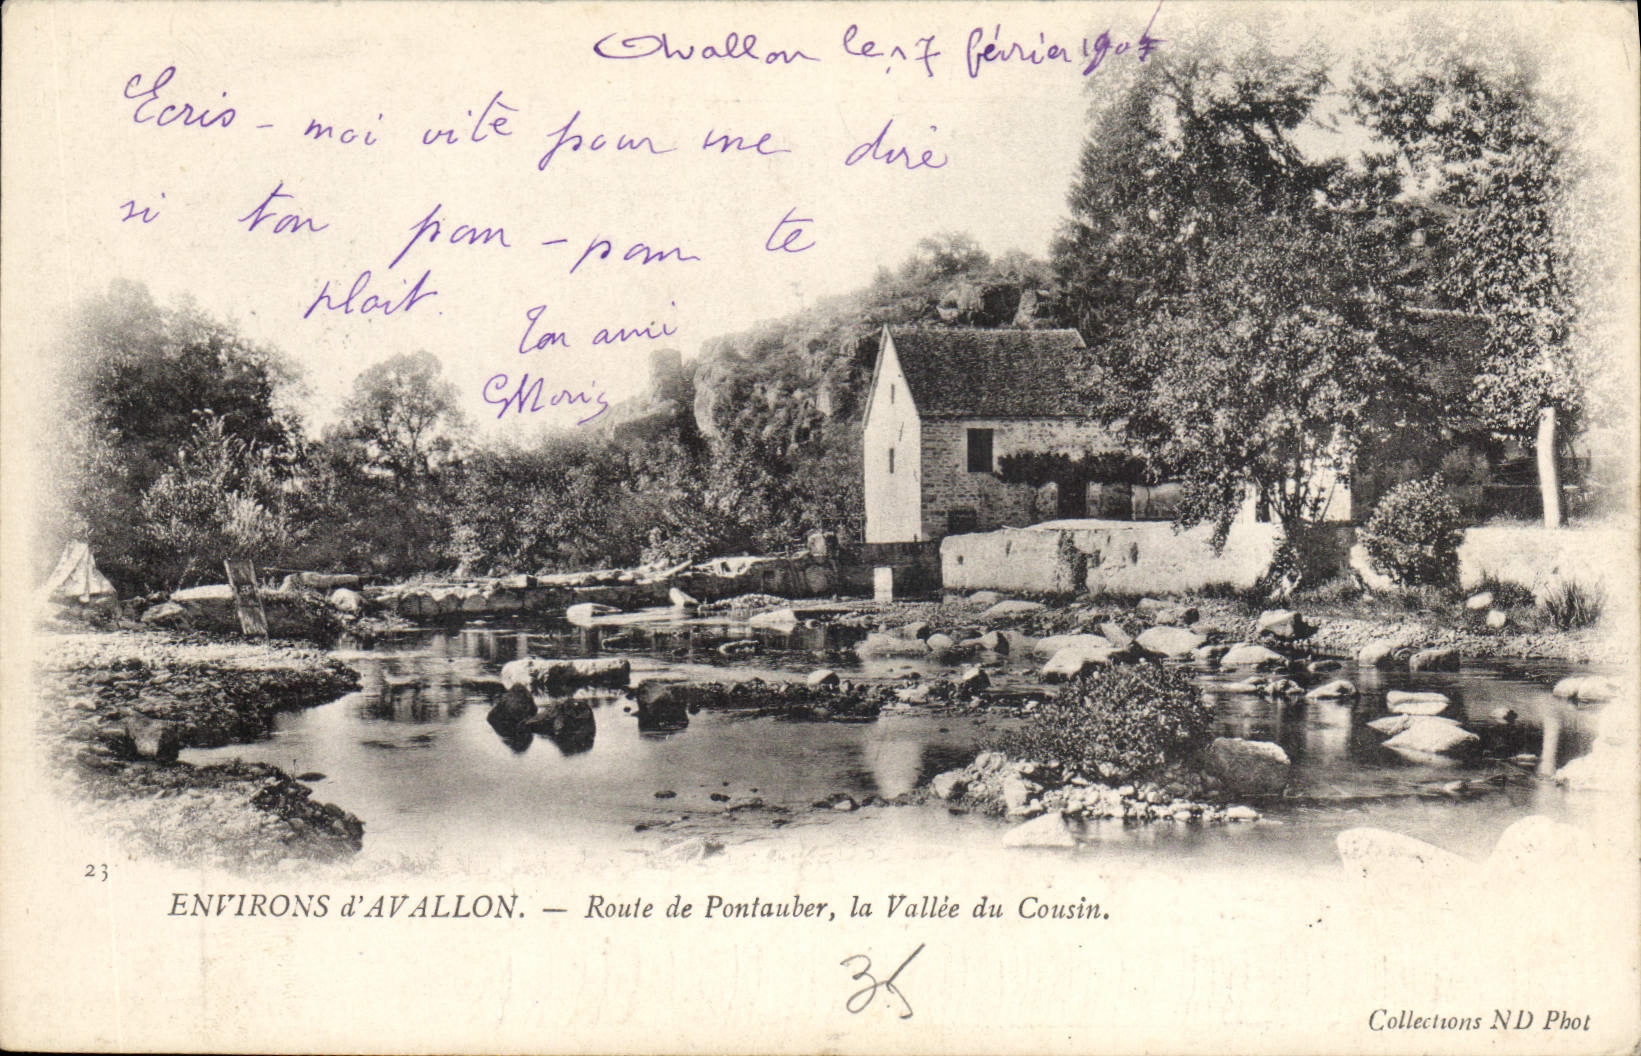 Avallon le 17 février 1907
Ecris-moi vite pour me dire
si ton pom-pom te
plait.
Ton ami
23
ENVIRONS d'AVALLON. — Route de Pontauber, la Vallée du Cousin.
35
Collections ND Phot